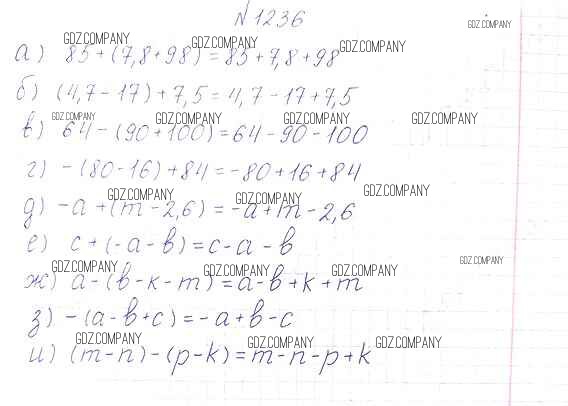 №1236
GDZ.COMPANY
GDZ.COMPANY GDZ.COMPANY GDZ.COMPANY
а) 85+(7,8+98)=85+7,8+98
б) (4,7-17)+7,5=4,7-17+7,5
GDZ.COMPANY GDZ.COMPANY GDZ.COMPANY GDZ.COMPANY
в) 64-(90+100)=64-90-100
г) -(80-16)+84=-80+16+84
GDZ.COMPANY GDZ.COMPANY GDZ.COMPANY
д) -a+(m-2,6)=-a+m-2,6
е) c+(-a-b)=c-a-b
GDZ.COMPANY GDZ.COMPANY GDZ.COMPANY GDZ.COMPANY
ж) a-(b-k-m)=a-b+k+m
з) -(a-b+c)=-a+b-c
GDZ.COMPANY GDZ.COMPANY GDZ.COMPANY
и) (m-n)-(p-k)=m-n-p+k